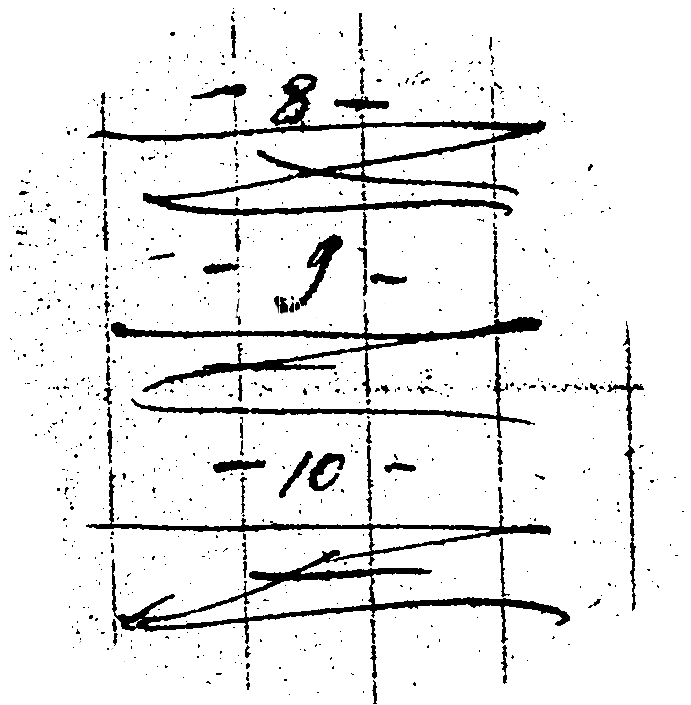 - 8 -
- 9 -
- 10 -